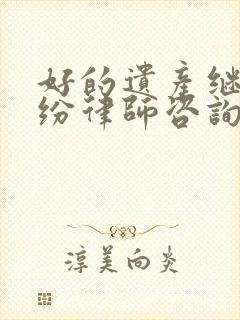 好的遺產继
纷律師咨詢
淳美向炎